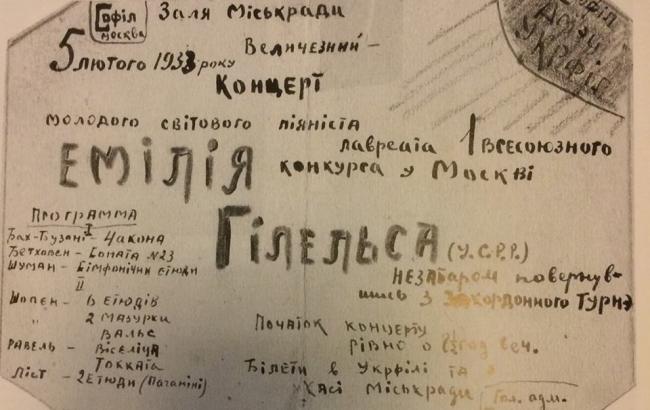 Софіл
Москва
Заля Міськради
Софіл
Укрфіл
5 лютого 1933 року
Величезний -
Концерт
молодого світового піяніста
Емілія
лавреата 1 всесоюзного
конкурса у Москві
Гілельса (У.С.Р.Р.)
незабаром повернув-
шись з закордонного турнэ
Початок концерту
рівно о год веч.
Білети в Укрфілі та в
касі Міськради
Гол. адм.
Программа
I
Бах-Бузані - Чакона
Бетховен - Соната №23
Шуман - Сімфонічни етюди
II
Шопен - 6 етюдів
" 2 мазурки
Вальс
Равель - Віселіца
Токката
Ліст - 2 етюди (Паганіні)